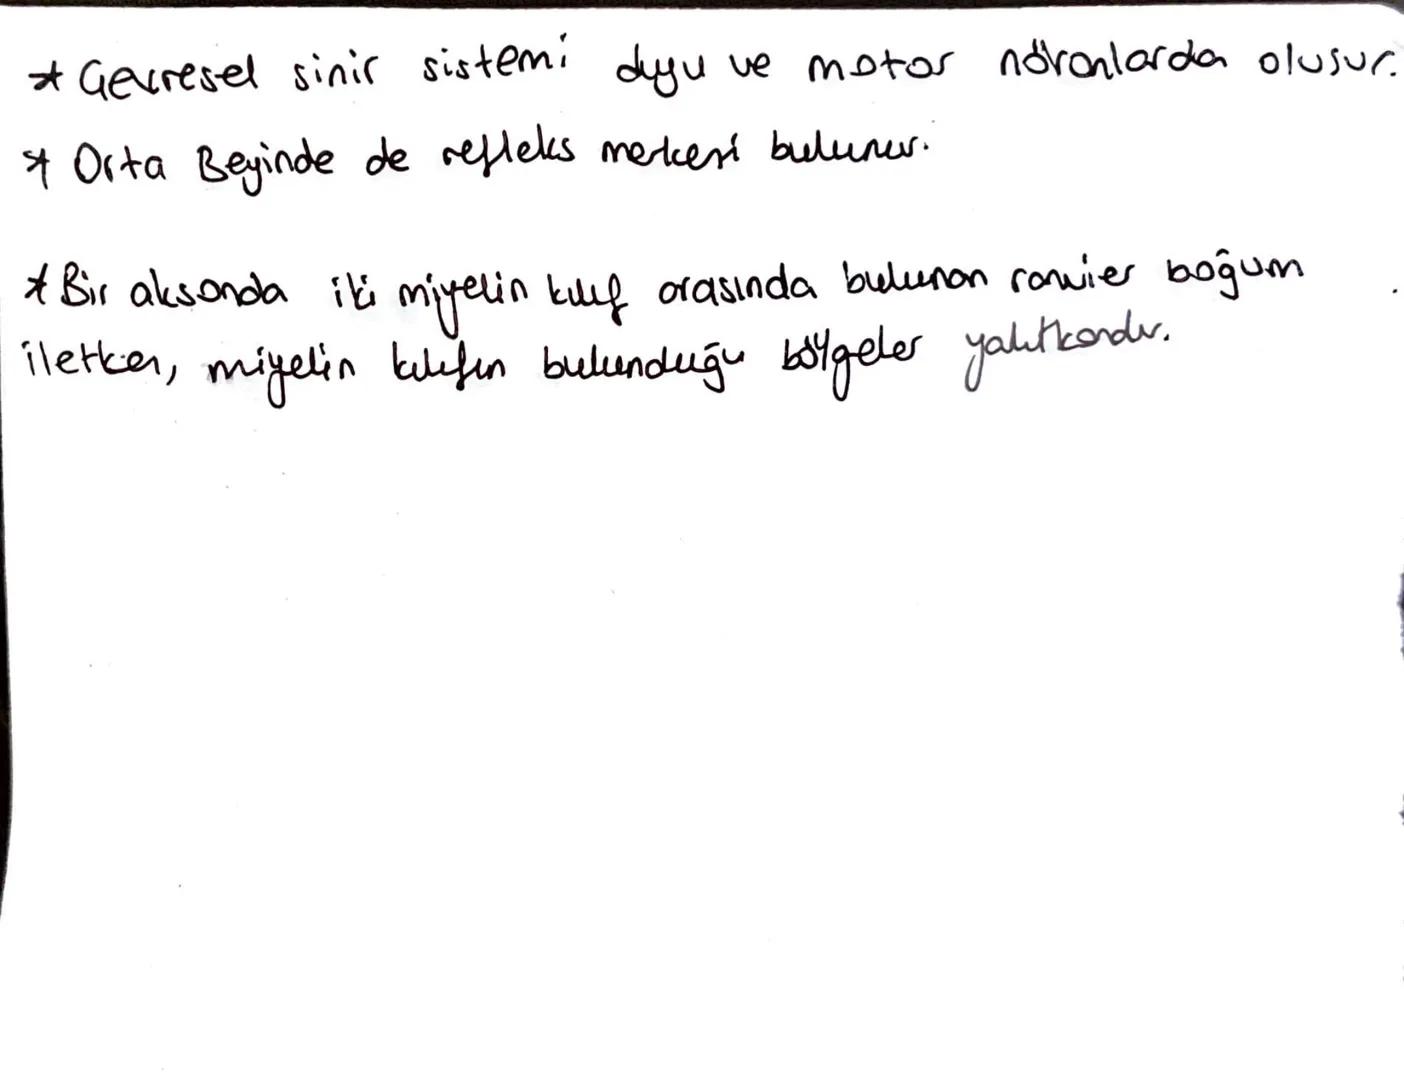 * Gevresel sinir sistemi duyu ve motor nöronlarda olusur.
* Orta Beyinde de refleks merkezi bulunur.
* Bir aksonda iki miyelin kılıf orasında bulunan ranvier boğum
iletken, miyelin kılıfın bulunduğu bölgeler yalıtkandır.